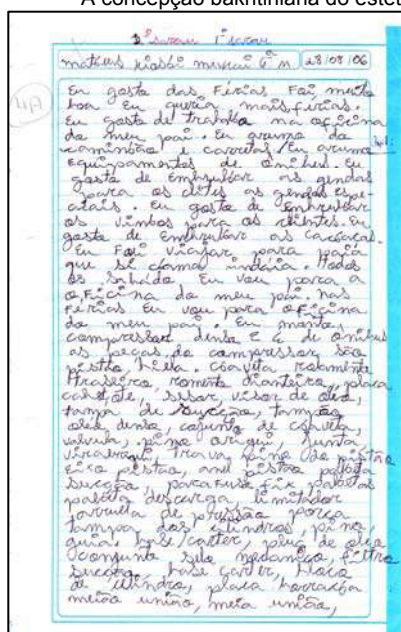 A concepção bakhtiniana do esteti
2º sarau 1º sarau
mateus 6º M 28/08/06
Eu gosto das Férias Foi muito
boa Eu queria mais férias.
Eu gosto de trabalha na oficina
do meu pai. Eu arumo do
caminhão e carretas Eu arumo
Equipamentos de ônibus. Eu
gosto de Embrulhar as gendas
para os cletes as gendas espe-
ciais. Eu gosto de embrulhar
os vinhos para os clientes. Eu
gosto de Embrulhar as cachaças.
Eu Foi viajar para
que si chama indaia. todos
os Sabado Eu vou para a
oficina do meu pai. nas
Férias Eu vou para oficina
do meu pai. Eu monto
compressor denso e é de ônibus
as peças do compressor são
pistão biela. rolamento
traseiro dianteiro, placa
visor de oleo,
tampa de sucção, tampão
oleo denso, cojunto de
valvula, pino junta
trava, pino do pistão
Eixo pistão, anel pistão palheta
sucção, parafuso fix palhetas
palheta descarga, limitador
arruella de pressão porca
tampa dos cilindros, pino,
guia, base/carter, de oleo
conjunto selo mecanico, filtro
sucção, base carter, bloco
de cilindro, placa borracha
meião união, meia união,